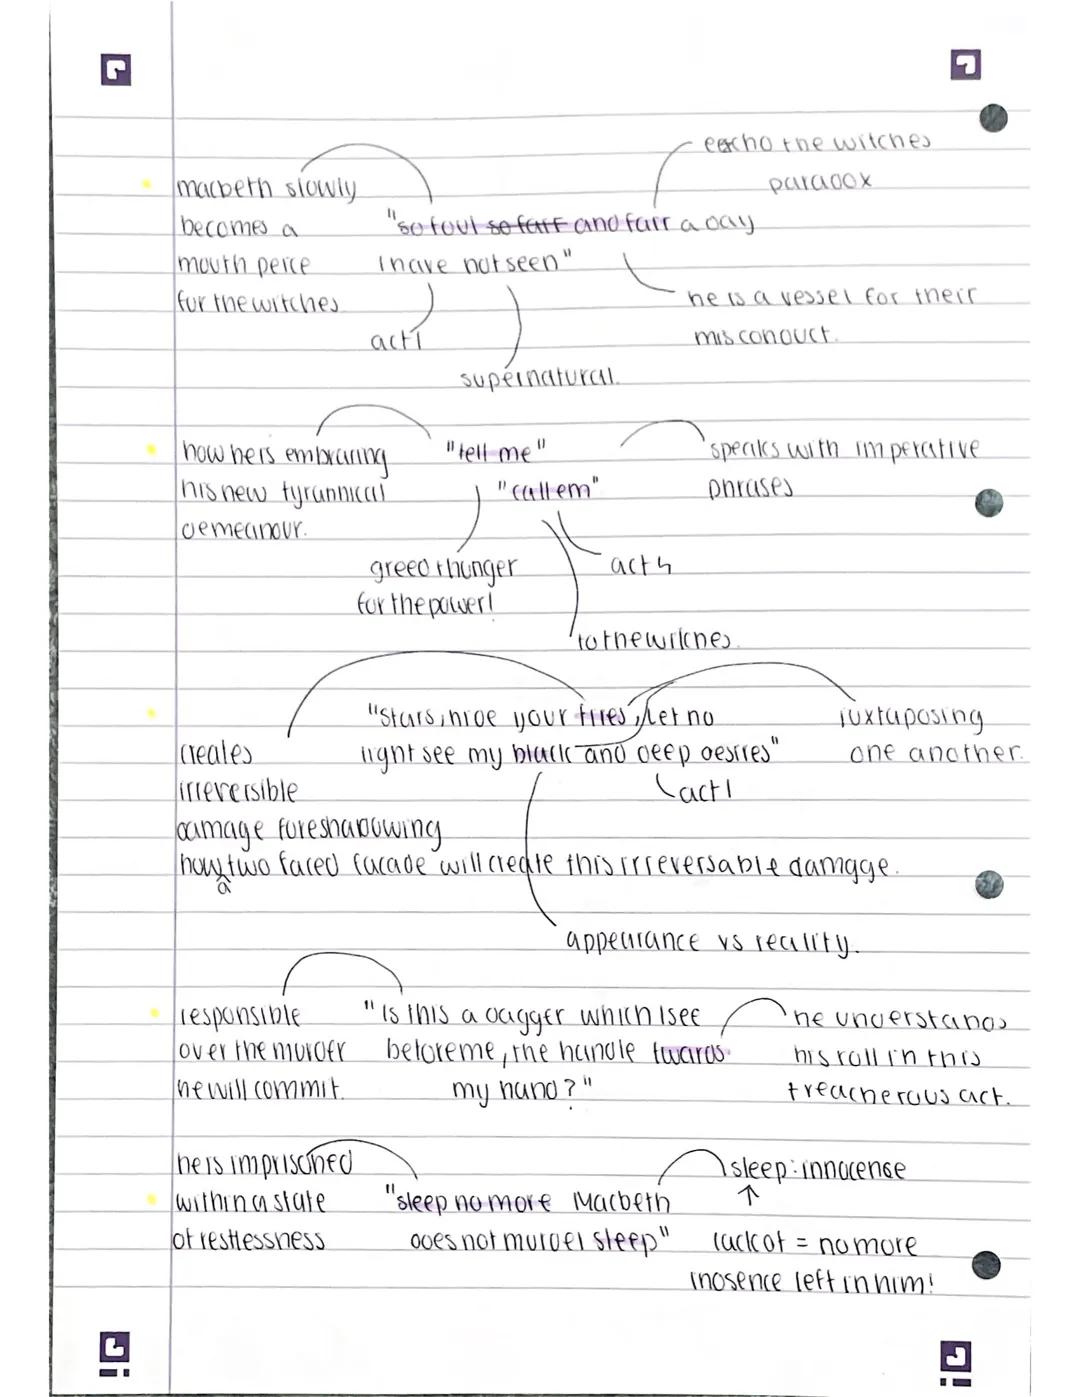 eecho the witches
paradox
macbeth slowly
becomes a
mouth peice
for the witches
"so foul so fair and fair a day
I have not seen"
he is a vessel for their
misconduct.
act 1
supernatural.
how he is embracing
his new tyrannical
demeanour.
"tell me"
"call em"
speaks with imperative
phrases
greed + hunger
for the power!
act 4
to the witches.
"Stars, hide your fires, Let no
light see my black and deep desires"
juxtaposing
one another.
act 1
creates
irreversible
damage foreshadowing
how a two faced facade will create this irreversable damagge.
appearance vs reality.
responsible
over the murder
he will commit.
"is this a dagger which I see
before me, the handle twards
my hand?"
he understands
his roll in this
treacherous act.
he is imprisoned
within a state
of restlessness
"sleep no more Macbeth
does not murder sleep"
sleep: innocense
↑
lack of = no more
inosence left in him!